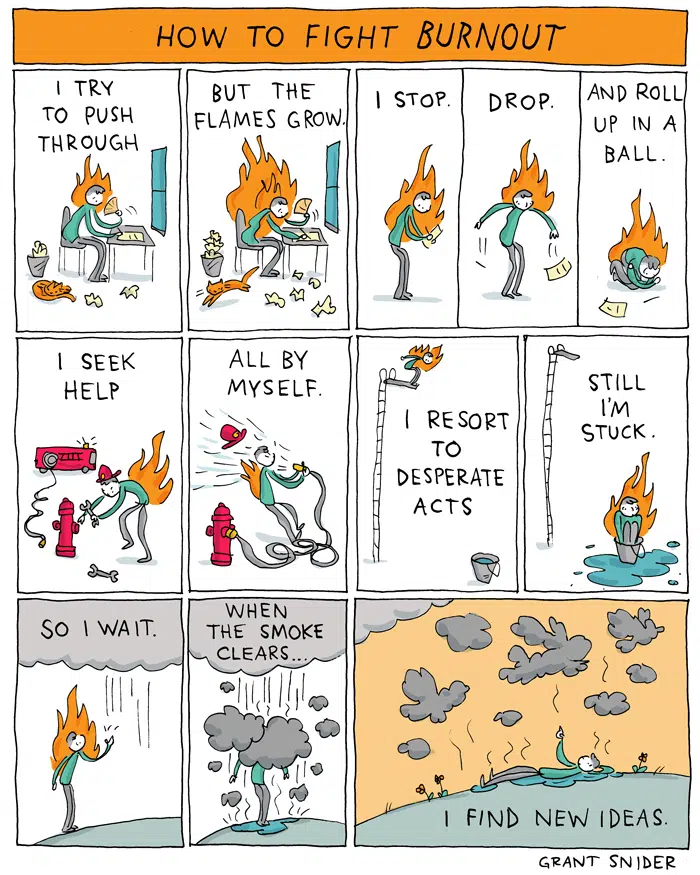 HOW TO FIGHT BURNOUT
I TRY
TO PUSH
THROUGH
BUT THE
FLAMES GROW.
I STOP.
DROP.
AND ROLL
UP IN A
BALL.
I SEEK
HELP
ALL BY
MYSELF.
I RESORT
TO
DESPERATE
ACTS
STILL
I'M
STUCK.
SO I WAIT.
WHEN
THE SMOKE
CLEARS...
I FIND NEW IDEAS.
GRANT SNIDER